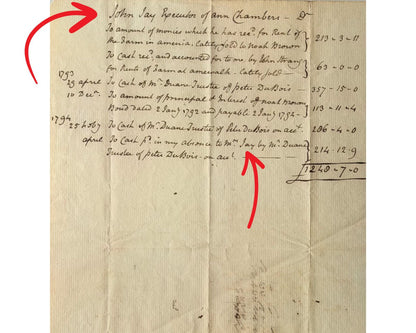 John Jay Executor of ann Chambers — Dr
To amount of monies which he has recd. for Rent of
the Farm in america. Lately sold to Noah Brown } 213-3-11
To Cash recd. and accounted for to me by John Strang
for Rent of Farm at amewalk. Lately sold — } 63-0-0
1793
23 april To Cash of Mr. Duane Trustee of Peter DuBois — 357-15-0
10 Decr. To amount of Principal & Interest of Noah Brown
Bond dated 2 Jany 1792 and payable 2 Jany 1794. } 113-11-4
1794
25 feby To Cash of Mr. Duane Trustee of Peter DuBois on acct. 286-4-0
april To Cash pd. in my absence to Mrs. Jay by Mr. Duane
Trustee of Peter DuBois — on acct. — } 214-12-9
1248-7-0